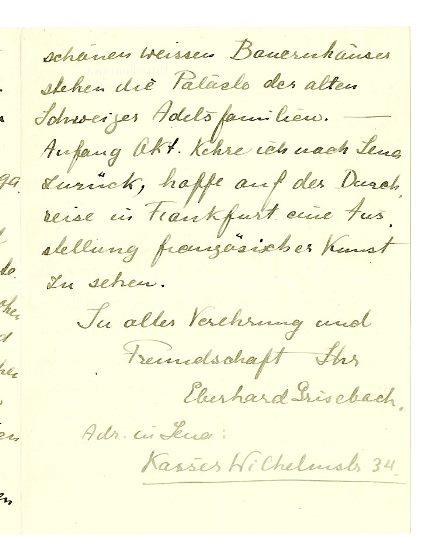 schönen weissen Bauernhäuser
stehen die Paläste der alten
Schweizer Adelsfamilien. —
Anfang Okt. kehre ich nach Jena
zurück, hoffe auf der Durch-
reise in Frankfurt eine Aus-
stellung französischer Kunst
zu sehen.
In alter Verehrung und
Freundschaft Ihr
Eberhard Grisebach.
Adr. in Jena:
Kaiser Wilhelmstr 34.